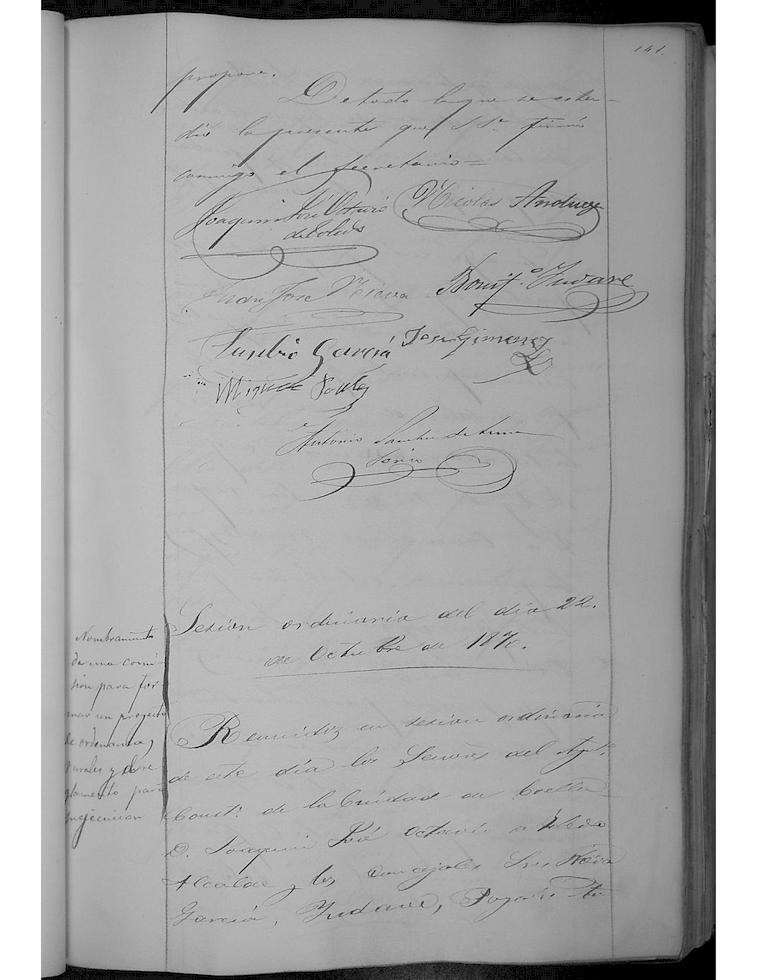 141.
propone.
De todo lo que se esten-
dió la presente que S. Sª firmó
conmigo el Secretario =
Joaquin José Octavio
de Toledo
Nicolas Anduez
Juan Jose Neeva
Bonifº Yudave
Eusebio Garcia
Jose Gimenez
Miguel
Antonio Sanchez de Luna
Sesion ordinaria del dia 22.
de Octubre de 1870.
Nombramiento
de una comi-
sion para for
mar un proyecto
de ordenanzas
rurales y de re
glamento para
su ejecucion
Reunidos en sesion ordinaria
de este dia los Señores del Aytº
Constˡ de la Ciudad de
D. Joaquin José Octavio de Toledo
Alcalde y los Concejales Sres Neeva
Garcia, Yudave,